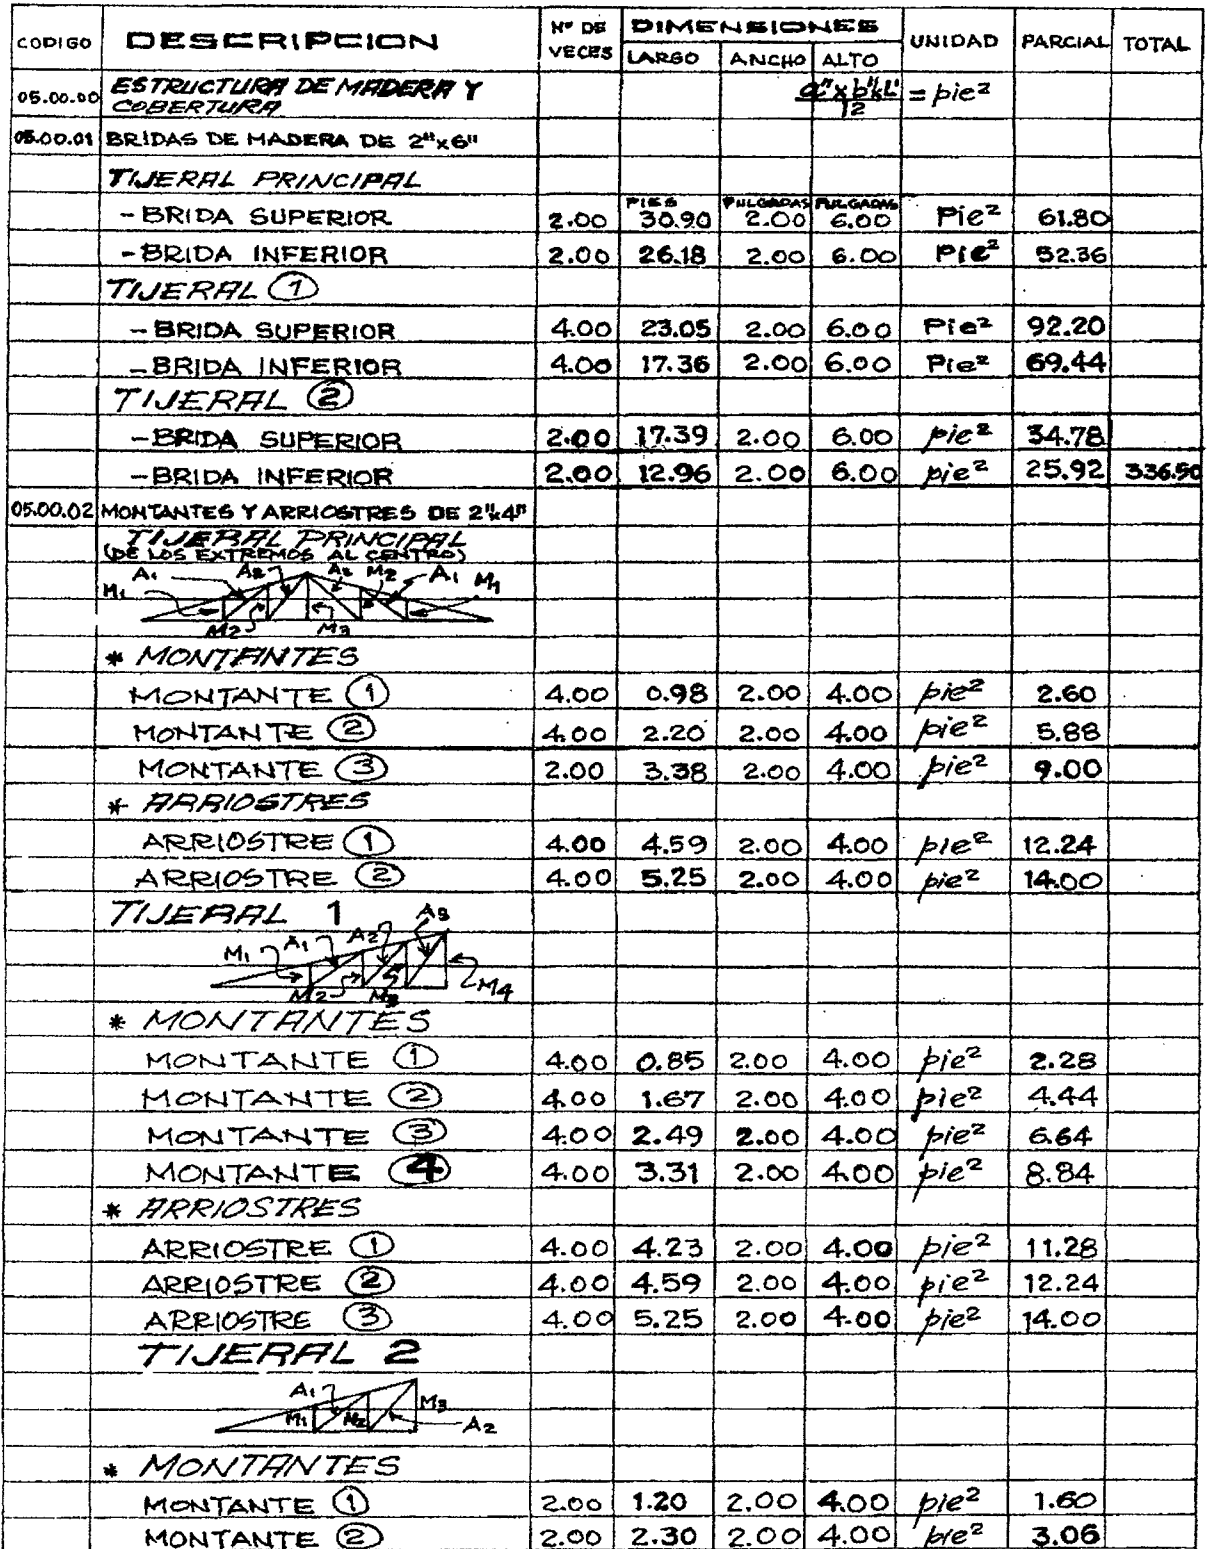 CODIGO DESCRIPCION Nº DE VECES DIMENSIONES UNIDAD PARCIAL TOTAL
LARGO ANCHO ALTO
05.00.00 ESTRUCTURA DE MADERA Y COBERTURA a"xb"xL'/12 = pie²
05.00.01 BRIDAS DE MADERA DE 2"x6"
TIJERAL PRINCIPAL
PIES PULGADAS PULGADAS
- BRIDA SUPERIOR 2.00 30.90 2.00 6.00 Pie² 61.80
- BRIDA INFERIOR 2.00 26.18 2.00 6.00 Pie² 52.36
TIJERAL 1
- BRIDA SUPERIOR 4.00 23.05 2.00 6.00 Pie² 92.20
- BRIDA INFERIOR 4.00 17.36 2.00 6.00 Pie² 69.44
TIJERAL 2
- BRIDA SUPERIOR 2.00 17.39 2.00 6.00 pie² 34.78
- BRIDA INFERIOR 2.00 12.96 2.00 6.00 pie² 25.92 336.50
05.00.02 MONTANTES Y ARRIOSTRES DE 2"x4"
TIJERAL PRINCIPAL
(DE LOS EXTREMOS AL CENTRO)
M1 A1 A2 A2 M2 A1 M1
M2 M3
* MONTANTES
MONTANTE 1 4.00 0.98 2.00 4.00 pie² 2.60
MONTANTE 2 4.00 2.20 2.00 4.00 pie² 5.88
MONTANTE 3 2.00 3.38 2.00 4.00 pie² 9.00
* ARRIOSTRES
ARRIOSTRE 1 4.00 4.59 2.00 4.00 pie² 12.24
ARRIOSTRE 2 4.00 5.25 2.00 4.00 pie² 14.00
TIJERAL 1
M1 A1 A2 A3
M2 M3 M4
* MONTANTES
MONTANTE 1 4.00 0.85 2.00 4.00 pie² 2.28
MONTANTE 2 4.00 1.67 2.00 4.00 pie² 4.44
MONTANTE 3 4.00 2.49 2.00 4.00 pie² 6.64
MONTANTE 4 4.00 3.31 2.00 4.00 pie² 8.84
* ARRIOSTRES
ARRIOSTRE 1 4.00 4.23 2.00 4.00 pie² 11.28
ARRIOSTRE 2 4.00 4.59 2.00 4.00 pie² 12.24
ARRIOSTRE 3 4.00 5.25 2.00 4.00 pie² 14.00
TIJERAL 2
A1 M3
M1 M2 A2
* MONTANTES
MONTANTE 1 2.00 1.20 2.00 4.00 pie² 1.60
MONTANTE 2 2.00 2.30 2.00 4.00 pie² 3.06